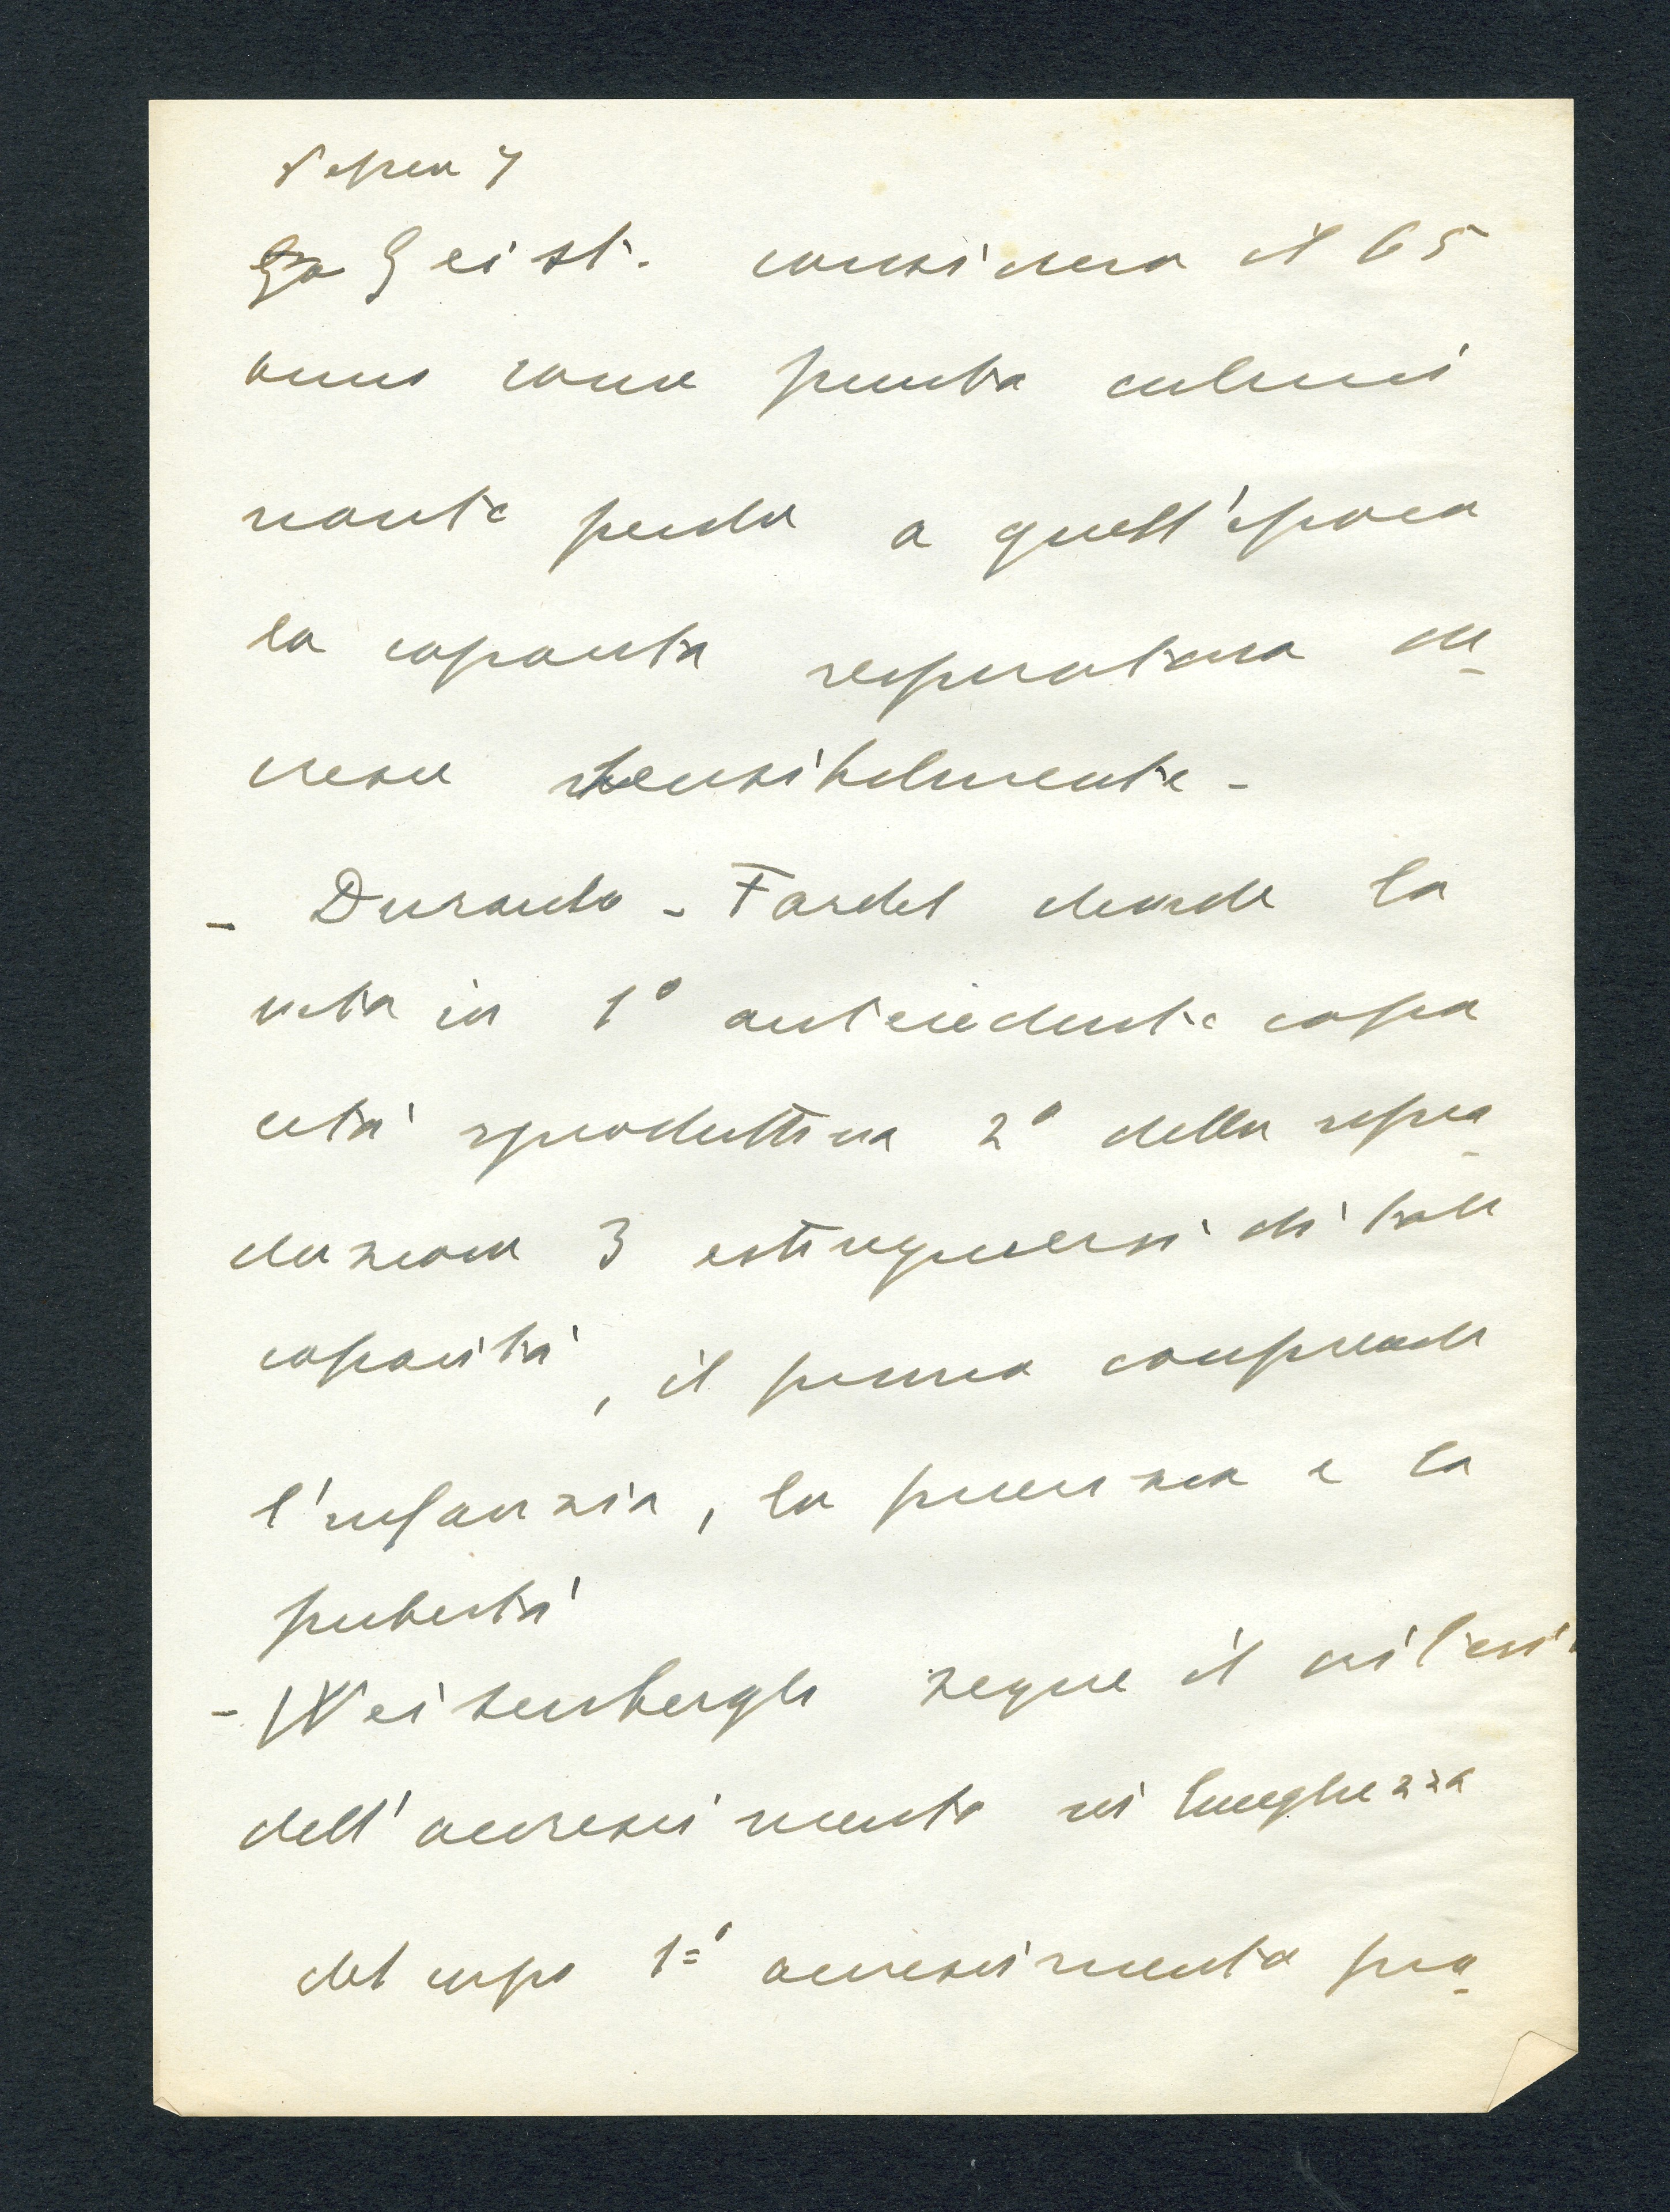 Geist. considera il 65
anno come punto culmi
nante perché a quell'epoca
la capacità respiratoria de-
cresce sensibilmente -
- Durando - Fardel divide la
vita in 1° antecedente capa
cità riproduttiva 2° della ripro-
duzione 3 estinguersi di tale
capacità, il primo comprende
l'infanzia, la puerizia e la
pubertà
- Weisenbergh segue il
dell'accrescimento in lunghezza
del corpo 1° accrescimento pro-